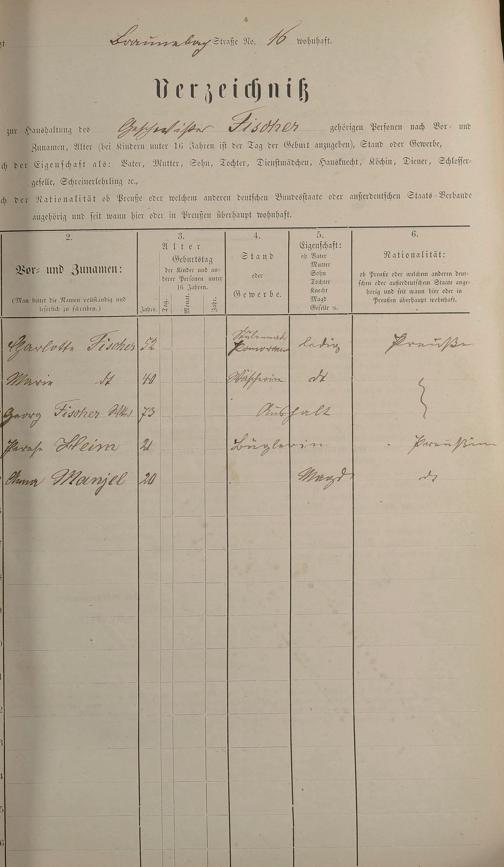 Straße No. 16 wohnhaft.
Verzeichniß
zur Haushaltung des Geschwister Fischer gehörigen Personen nach Vor- und
Zunamen, Alter (bei Kindern unter 16 Jahren ist der Tag der Geburt anzugeben), Stand oder Gewerbe,
ch der Eigenschaft als: Vater, Mutter, Sohn, Tochter, Dienstmädchen, Hausknecht, Köchin, Diener, Schlosser-
geselle, Schreinerlehrling ꝛc.,
ch der Nationalität ob Preuße oder welchem anderen deutschen Bundesstaate oder außerdeutschen Staats-Verbande
angehörig und seit wann hier oder in Preußen überhaupt wohnhaft.
2.
Vor- und Zunamen:
(Man bittet die Namen vollständig und
leserlich zu schreiben.)
3.
Alter
Geburtstag
der Kinder und an-
derer Personen unter
16 Jahren.
Jahre.
Tag.
Monat.
Jahr.
4.
Stand
oder
Gewerbe.
5.
Eigenschaft:
ob Vater
Mutter
Sohn
Tochter
Knecht
Magd
Geselle ꝛc.
6.
Nationalität:
ob Preuße oder welchem anderen deut-
schen oder außerdeutschen Staate ange-
hörig und seit wann hier oder in
Preußen überhaupt wohnhaft.
Charlotte Fischer 52 ledig Preuße
Marie dt 40 Wäscherin dt
Georg Fischer 73
Heim 21 Büglerin Preußin
Anna Manjel 20 Magd dt